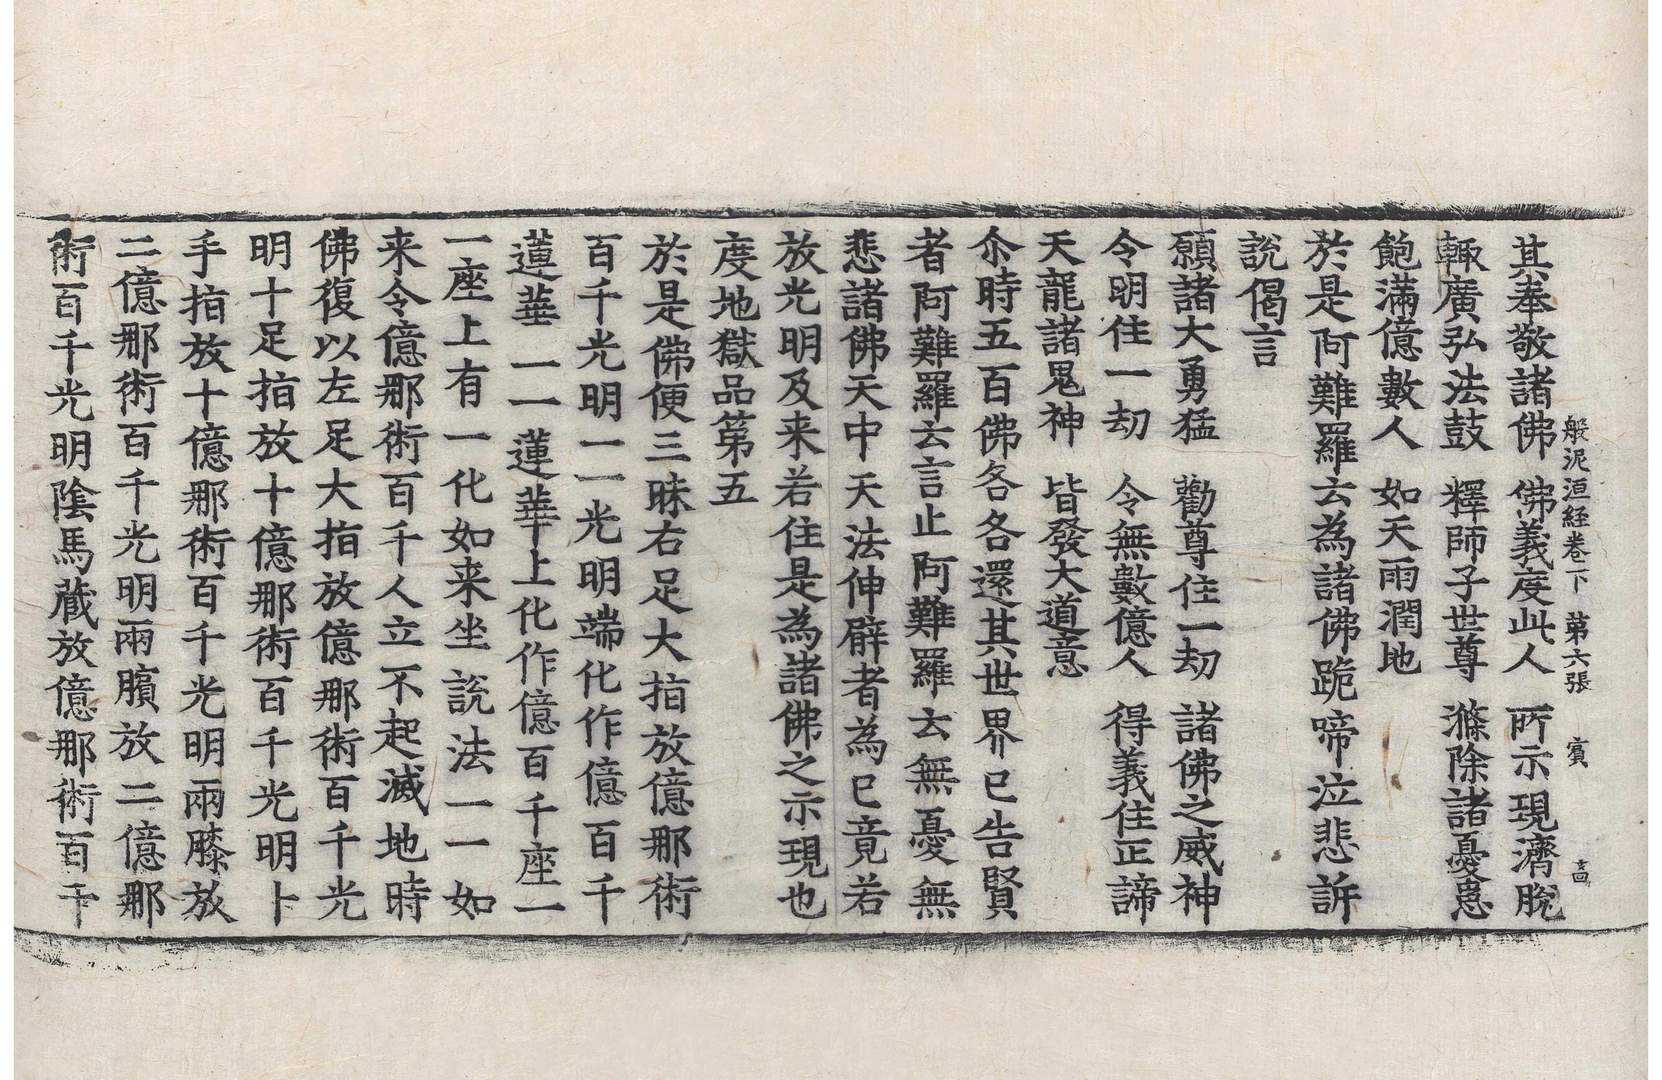 般泥洹経卷下　第六張　賓
其奉敬諸佛　佛義度此人　所示現濟脫
輙廣弘法鼓　釋師子世尊　滌除諸憂患
飽滿億數人　如天雨潤地
於是阿難羅云為諸佛跪啼泣悲訴
說偈言
願諸大勇猛　勸尊住一劫　諸佛之威神
令明住一劫　令無數億人　得義住正諦
天龍諸鬼神　皆發大道意
尒時五百佛各各還其世界已告賢
者阿難羅云言止阿難羅云無憂無
悲諸佛天中天法伸臂者為已竟若
放光明及来若住是為諸佛之示現也
度地獄品第五
於是佛便三昧右足大拍放億那術
百千光明一一光明端化作億百千
蓮華一一蓮華上化作億百千座一
一座上有一化如来坐說法一一如
来令億那術百千人立不起滅地時
佛復以左足大拍放億那術百千光
明十足拍放十億那術百千光明卜
手拍放十億那術百千光明兩膝放
二億那術百千光明兩臏放二億那
術百千光明陰馬藏放億那術百千